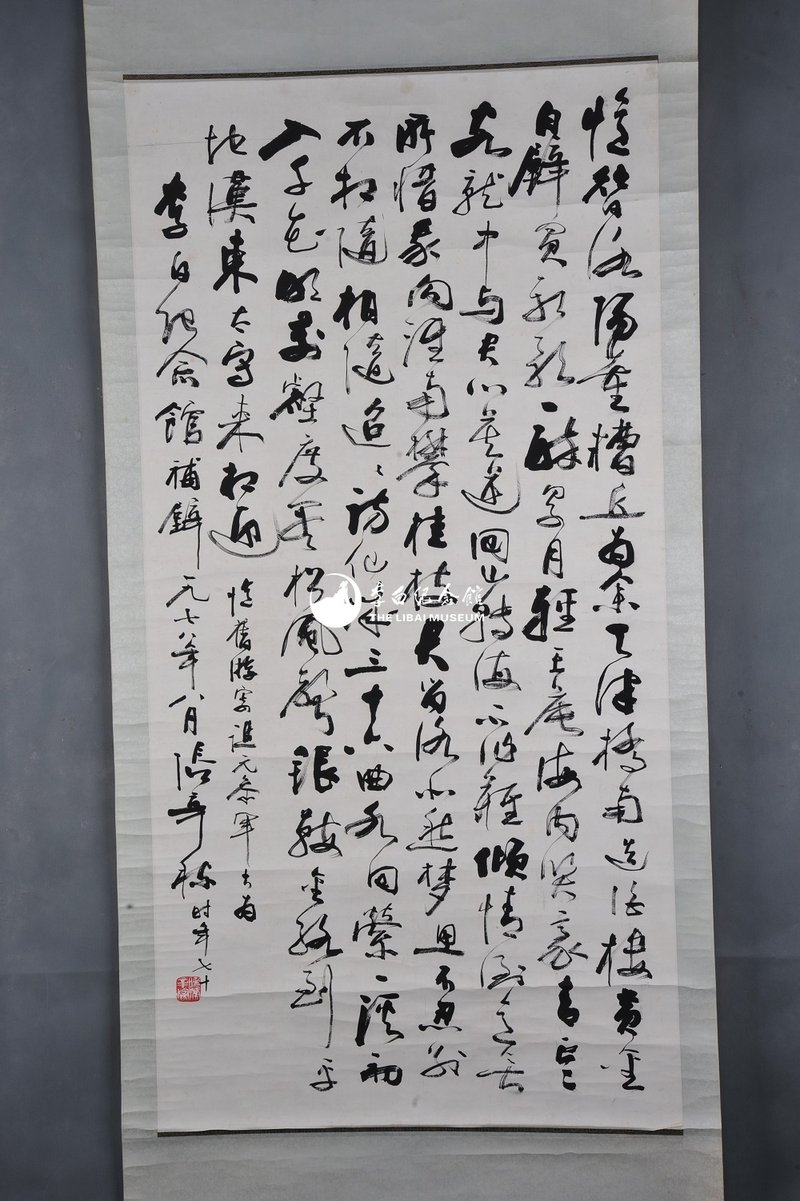 憶昔洛陽董糟丘为余天津橋南造酒樓黄金
白璧買歌笑一醉累月輕王侯海内賢豪青雲
客就中与君心莫逆回山轉海不作難傾情倒意無
所惜我向淮南攀桂枝君留洛北愁夢思不忍别
还相隨相隨迢々訪仙城三十六曲水回縈一溪初
入千花明萬壑度盡松風聲銀鞍金絡到平
地漢東太守来相迎 憶舊游寄譙元參軍 书为
李白紀念館補壁 一九七八年八月 时年七十
李白纪念馆
THE LIBAI MUSEUM